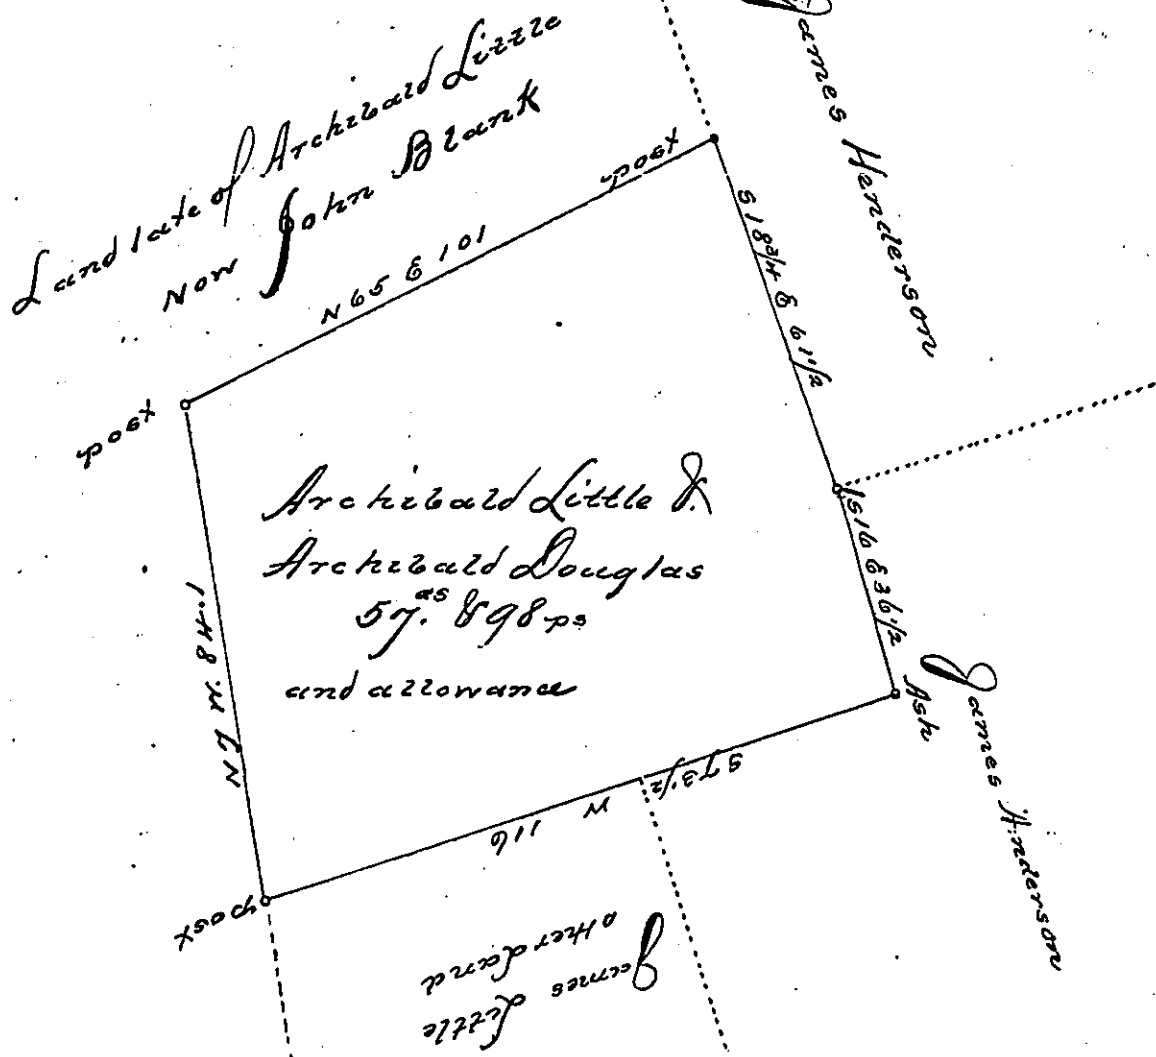 Land late of Archibald Little
Now John Blank
James Henderson
post
N 65 E 101
S 18 3/4 E 61 1/2
post
Archibald Little &
Archibald Douglas
57.as & 98 ps
and allowance
S 16 E 36 1/2
Ash
James Anderson
S 73 1/2 W 116
post
James Little
other Land